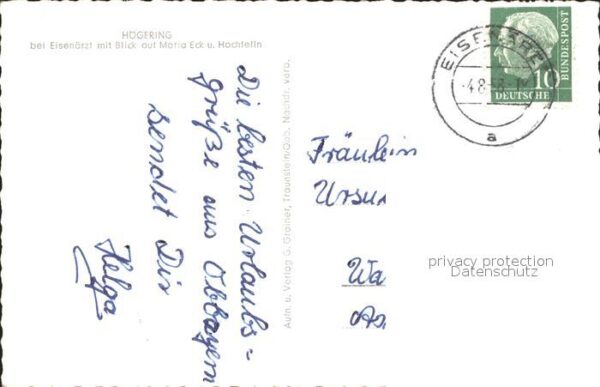 HÖGERING
bei Eisenärzt mit Blick auf Maria Eck u. Hochfelln
Die besten Urlaubs=
grüße aus Obbayern
sendet Dir
Helga
Aufn. u. Verlag G. Greiner, Traunstein/Obb. Nachdr. verb.
EISENÄRZT
4.8.58
a
10
DEUTSCHE
BUNDESPOST
Fräulein
Ursu
Wa
privacy protection
Datenschutz